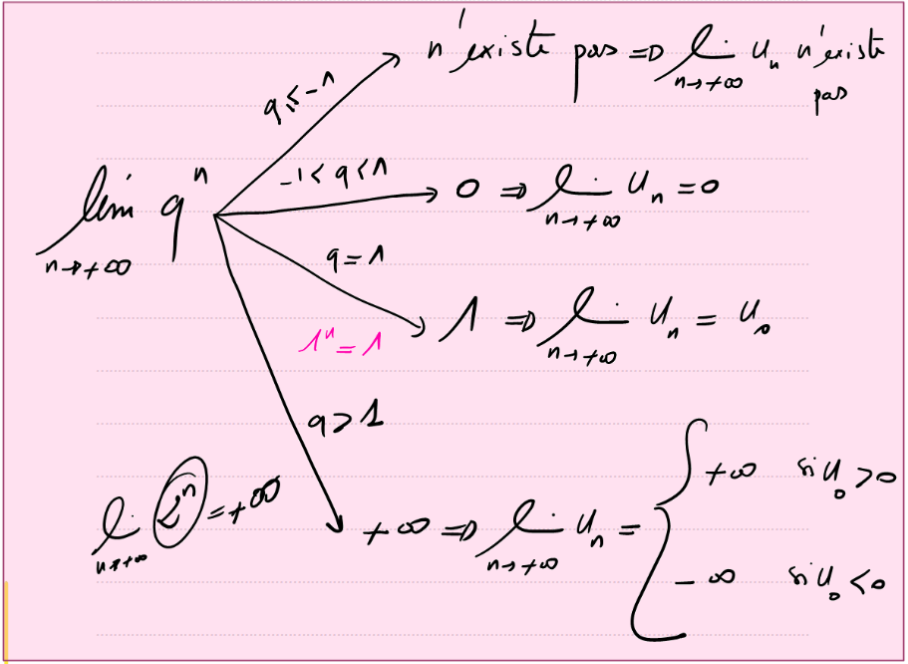 lim qⁿ
n→+∞
q ≤ -1
n'existe pas ⇒ lim uₙ n'existe pas
n→+∞
-1 < q < 1
0 ⇒ lim Uₙ = 0
n→+∞
q = 1
1ⁿ = 1
1 ⇒ lim Uₙ = U₀
n→+∞
q > 1
+∞ ⇒ lim Uₙ = {
n→+∞
+∞ si U₀ > 0
-∞ si U₀ < 0
lim 2ⁿ = +∞
n→+∞